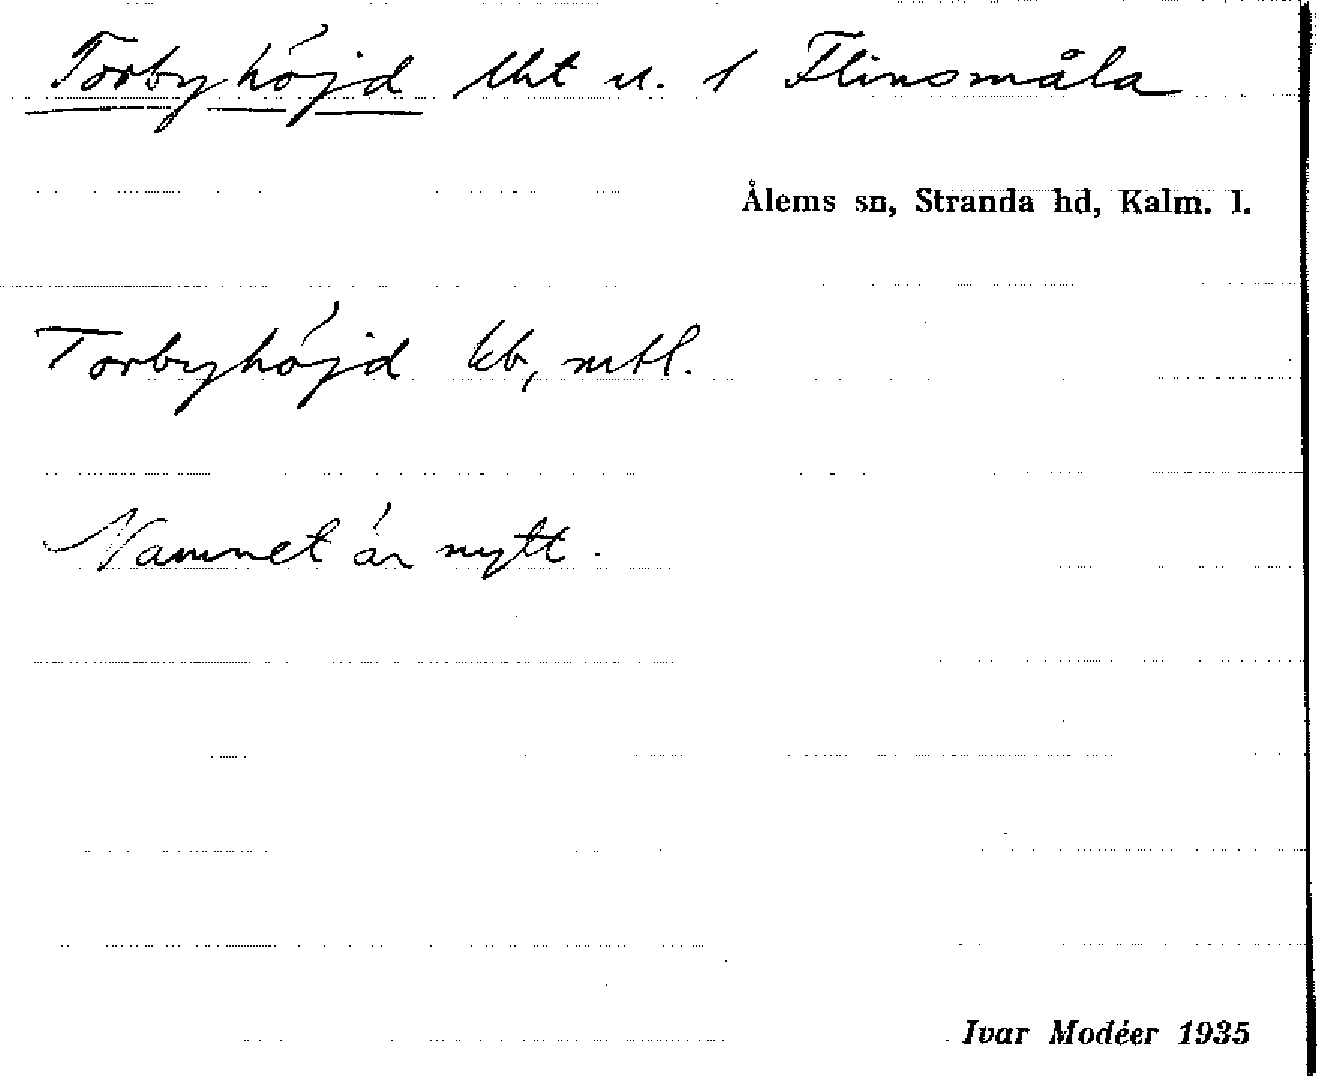 Torbyhöjd lht u. 1 Flinsmåla
Ålems sn, Stranda hd, Kalm. l.
Torbyhöjd kb, mtl.
Namnet är nytt.
Ivar Modéer 1935